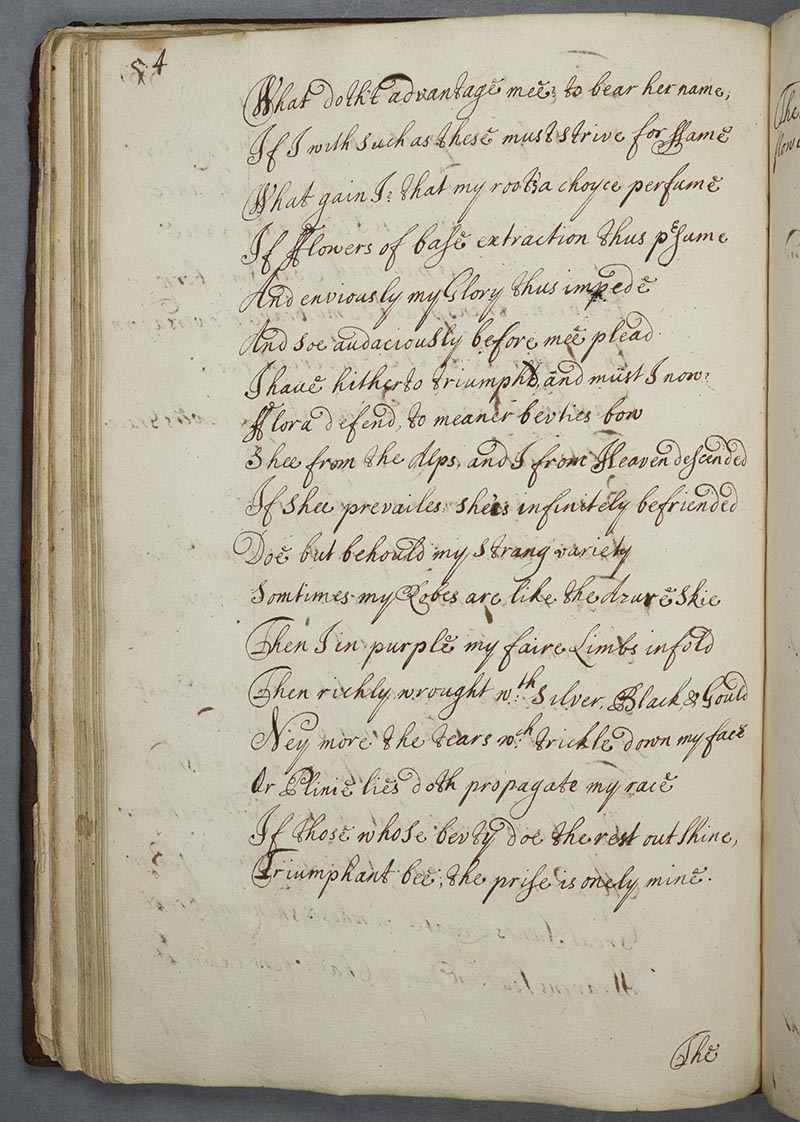 54
What doth't advantage mee; to bear her name,
If I with such as these must strive for ffame
What gain I? that my root's a choyce perfume
If fflowers of base extraction thus p^esume
And enviously my Glory thus impede
And soe audaciously before mee plead.
I have hitherto triumph'd, and must I now?
fflora defend, to meaner bevties bow
Shee from the Alps, and I from Heaven descended
If shee prevailes she'is infinitely befriended
Doe but behould my strang variety
Somtimes my Robes are like the Azure Skie
Then I in purple my faire Limbs infold
Then richly wrought w:th Silver, Black, & Gould
Ney more the tears w:ch trickle down my face
Or Plinie lies doth propagate my race
If those whose bevty doe the rest out shine,
Triumphant bee; the prise is onely mine.
The
The
flow